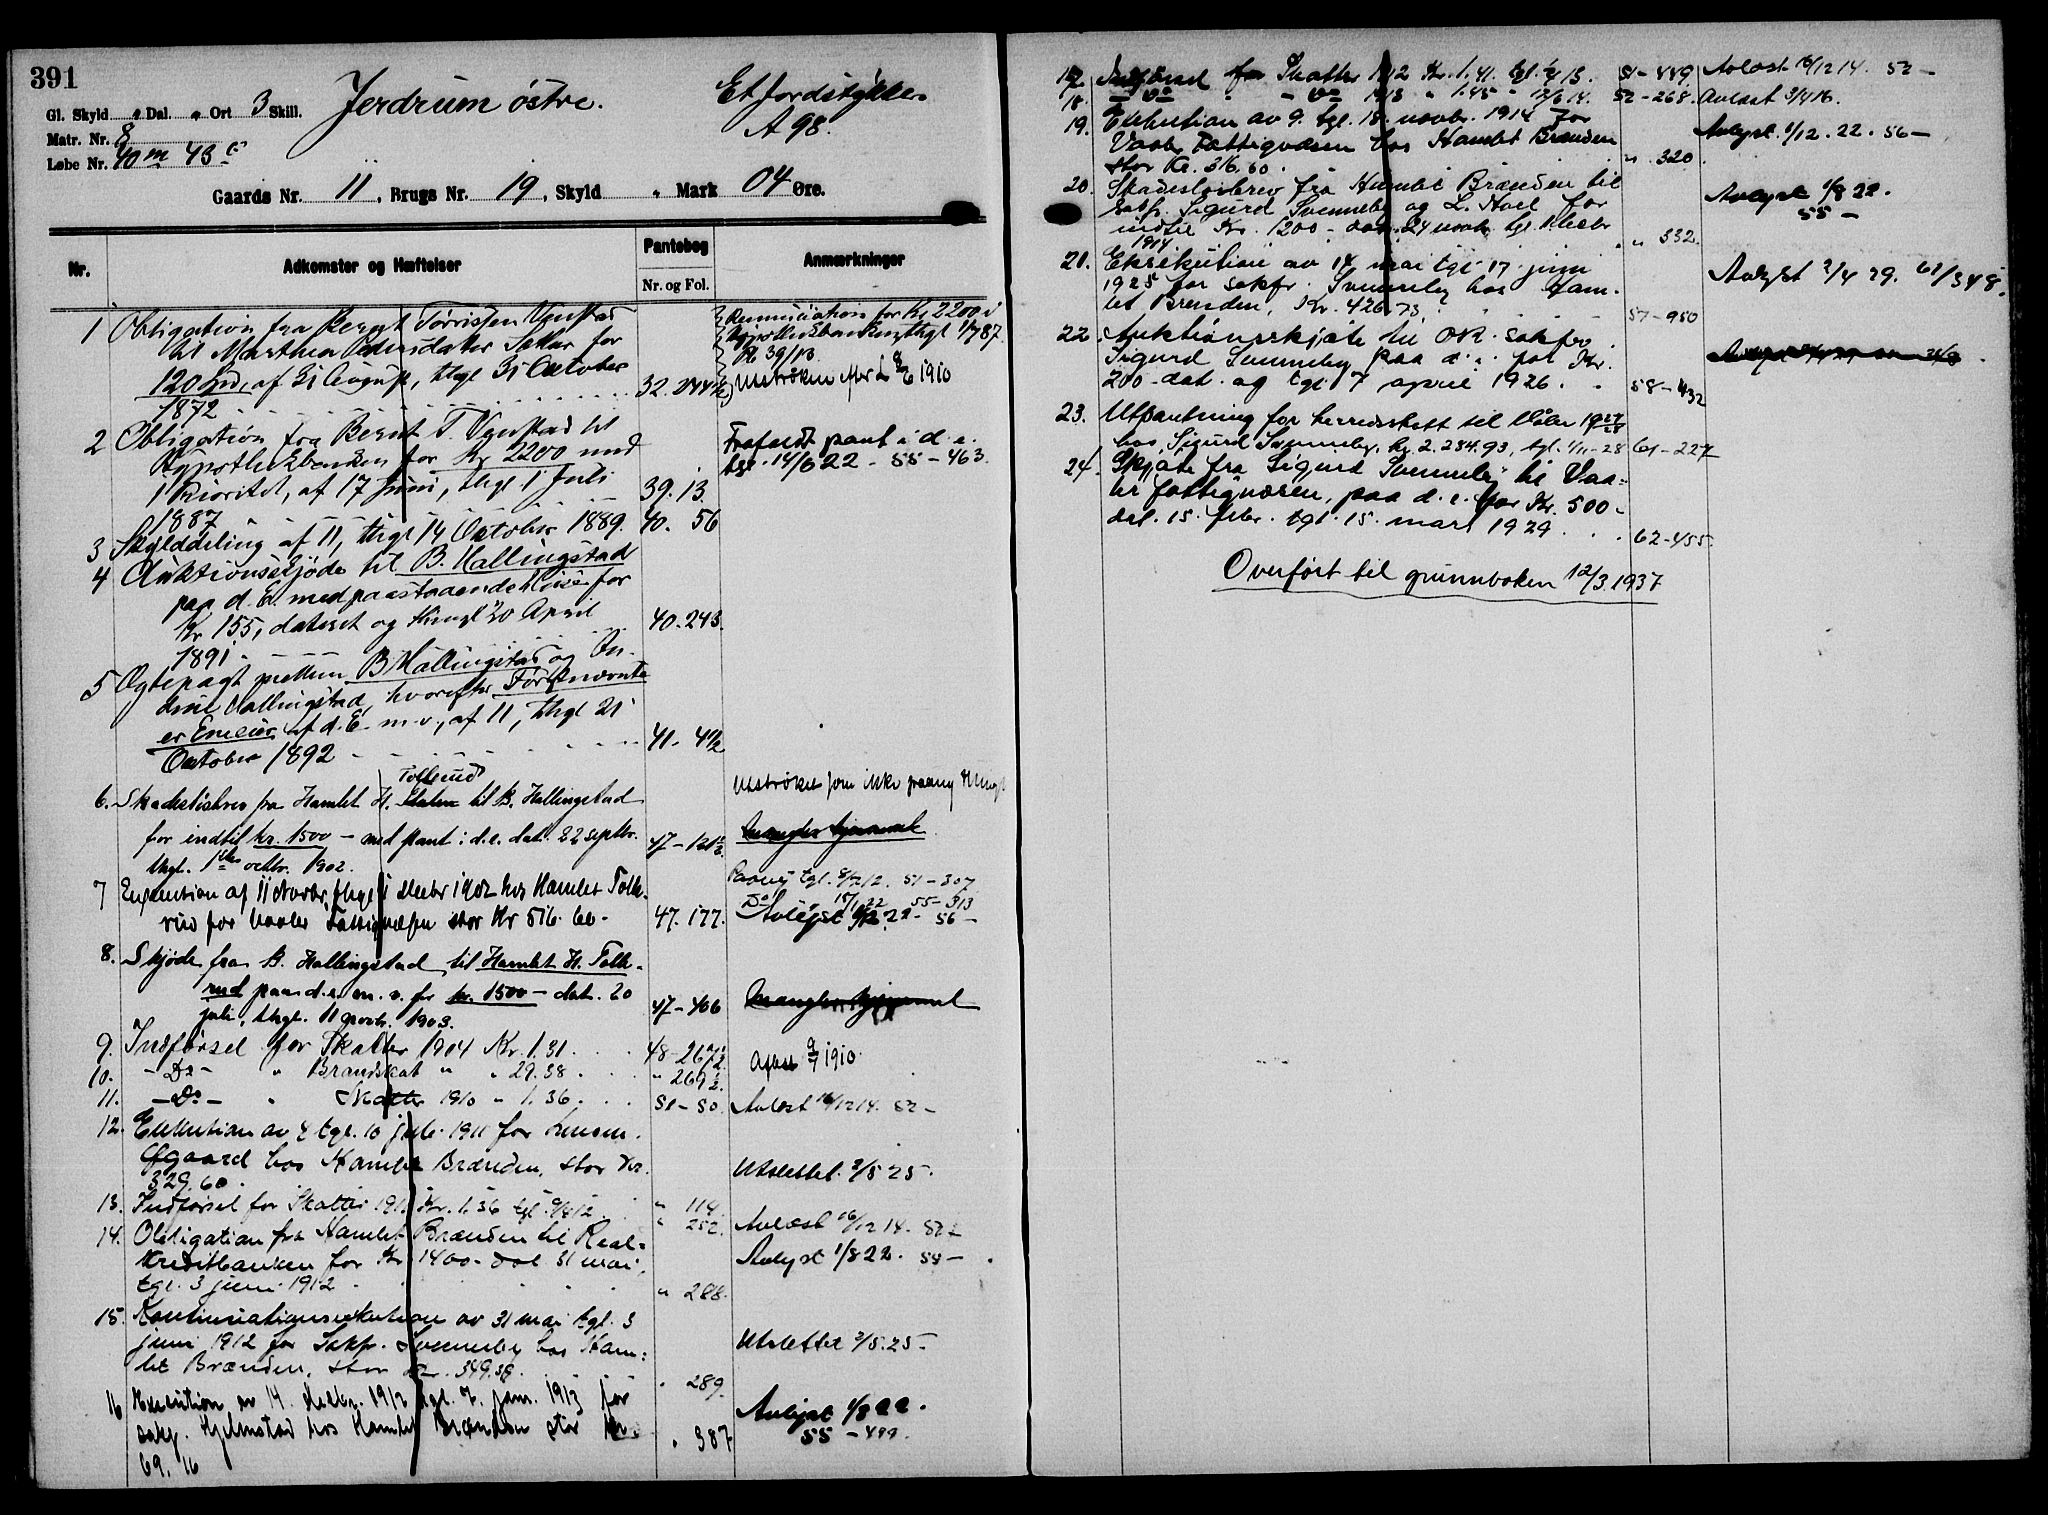 391
Gl. Skyld " Dal. " Ort 3 Skill.
Matr. Nr. 8
Løbe Nr. 40 m 43 c
Jerdrum østre.
Et Jordstykke
A 98.
Gaards Nr. 11, Brugs Nr. 19, Skyld " Mark 04 Øre.
Nr. Adkomster og Hæftelser Pantebog Nr. og Fol. Anmærkninger
1 Obligation fra Berngt Torristen Ugustad
til Marthea Pedersdatter Sætter for
120 Spd, af 31 August, thgl 31 October
1872 32. 244
Renunciation for Kr 2200 i
Hypothekbanken, thgl 1/7 87
Pb 39/13
Udstrøken efter L 8/6 1910
2 Obligation fra Bernt T. Ugustad til
Hypothekbanken for Kr 2200 med
1 Prioritet, af 17 Juni, thgl 1 Juli
1887 39. 13.
Frafaldt pant i d. e.
tgl. 14/6 22 - 55 - 463.
3 Skylddeling af 11, thgl 14 October 1889. 40. 56
4 Auktionsskjøde til B. Hallingstad
paa d. E. med paastaaende Huse for
Kr 155, dateret og thingl 20 April
1891. 40. 243.
5 Ægtepagt mellem B Hallingstad og
Hallingstad, hvorefter Førstnævnte
er Eneeier af d. E. m. v., af 11, thgl 21
October 1892 41. 41½
6. Skadesløsbrev fra Hamlet H. Tollerud til B. Hallingstad
for indtil kr. 1500 - med pant i d. e. dat. 22 septbr.
thgl. 1ste octbr. 1902. 47 - 121½
Udstrøket som ikke paany thingl
Mangler hjemmel
7 Execution af 11 Novbr, thgl 1 Decbr 1902 hos Hamlet Tolle-
rud for Vaaler Fattigvæsen stor Kr 516. 60 - 47. 177.
Paany tgl. 51 - 307
Do 15/1 22 55 - 313
Avlyst 1/12 22 - 56 -
8. Skjøde fra B. Hallingstad til Hamlet H. Tolle-
rud paa d. e. m. v. for kr. 1500 - dat. 20
juli, thgl. 11 novb. 1903. 47 - 406
Mangler hjemmel
9. Indførsel for Skatter 1904 Kr. 1.31 48 - 267½
10. - Do - " Brandskat " " 29.38 " 269½
Aflæst 9/7 1910.
11. - Do - " Skatter 1910 " 1.36 51 - 50.
Avlæst 16/12 14. 52 -
12. Exekution av 4 tgl. 10 juli 1911 for Lensm.
Øfgaard hos Hamlet Brænden, stor Kr.
329.60. " 114.
Utslettet 2/5 25.
13. Indførsel for Skatter 1911 Kr. 1.36 tgl. 9/4 12. " 252.
Avlæst 16/12 14. 52 -
14. Obligation fra Hamlet Brænden til Real-
kreditbanken for Kr. 1400 - dat 31 mai,
tgl. 3 juni 1912 " 288.
Avlyst 1/8 22. 55 -
15. Kontinuationsexekution av 31 mai tgl. 3
juni 1912 for Sakf. Svenneby hos Ham-
let Brænden, stor Kr. 349.39. " 289.
Utslettet 2/5. 25 -
16 Execution av 14. decbr. 1912 tgl. 7. jan. 1913 for
sakf. Hjelmstad hos Hamlet Brænden stor Kr.
69. 16 " 387
Avlyst 1/8 22.
55 - 499.
17. Indførsel for Skatter 1912 Kr. 1.41. tgl. 13. 51 - 449.
Avlæst 16/12 14. 52 -
18. - Do " - Do 1913 " 1.45 " 12/6 14. 52 - 268.
Avlæst 3/4 16.
19. Exekution av 9. tgl. 18. novbr. 1914 for
Vaaler Fattigvæsen hos Hamlet Brænden
stor Kr. 316.60. " 320
Avlyst 1/12. 22. 56 -
20. Skadesløsbrev fra Hamlet Brænden til
sakf. Sigurd Svenneby og L. Hoel for
indtil Kr. 1200 - dat. 24 novbr. tgl. 1 decbr
1914 " 332.
Avlyst 1/8 22.
55 -
21. Eksekution av 14 mai tgl 17 juni
1925 for sakfr. Svenneby hos Ham-
let Brenden, Kr. 426.73 57 - 950
Avlyst 2/4 29. 62/348.
22. Auktionsskjøte til OR. sakfr.
Sigurd Svenneby paa d. e. for Kr.
200 - dat. og tgl. 7 april 1926. 58 - 432
23. Utpantning for herredsskatt til Våler 1927/28
hos Sigurd Svenneby, kr. 2.234.93, tgl. 1/11 - 28 61 - 227
24. Skjøte fra Sigurd Svenneby til Vaa-
ler fattigvæsen, paa d. e. for Kr. 500 -
dat. 15. febr. tgl. 15. mars 1929. 62 - 455.
Overført til grunnboken 12/3.1937